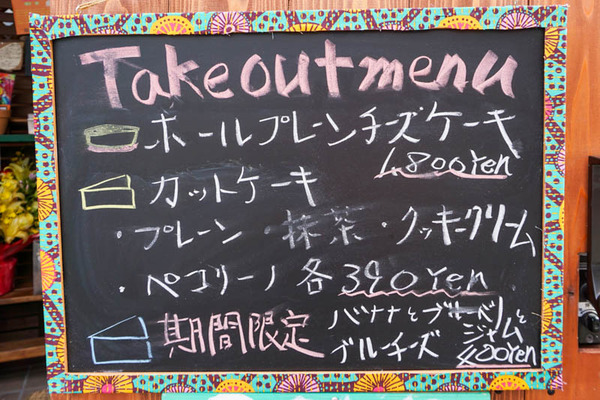 Takeout menu
ホールプレーンチーズケーキ
4,800yen
カットケーキ
・プレーン ・抹茶 ・クッキークリーム
・ペコリーノ 各390yen
期間限定 バナナとブルーベリーと
ジャム
ブルーチーズ 400yen